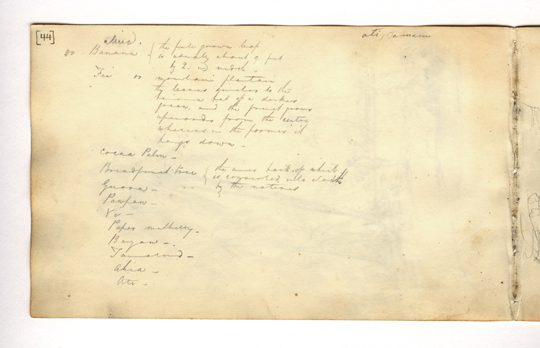 [44]
or Banana { the full grown leaf
is usually about 9 feet
by 2. in width.
or mountain plantain
the leaves similar to the
banana but of a darker
green, and the fruit grows
upwards from the centre
whereas in the former it
hangs down.
Cocoa Palm -
Breadfruit tree { the inner bark of which
is converted into cloth
by the natives
Guava -
Pawpaw -
Vi -
Paper mulberry.
Banyan -
Tamarind -
Ahia -
Ati -